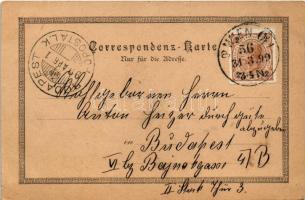 Correspondenz-Karte
Nur für die Adresse.
WIEN
56
31.3.99
3-4N
BUDAPEST
Wohlgeboren Herrn
Anton
abzugeben
in
Budapest
VI by Bajnokgasse 4/B
II Stock Thür 3.